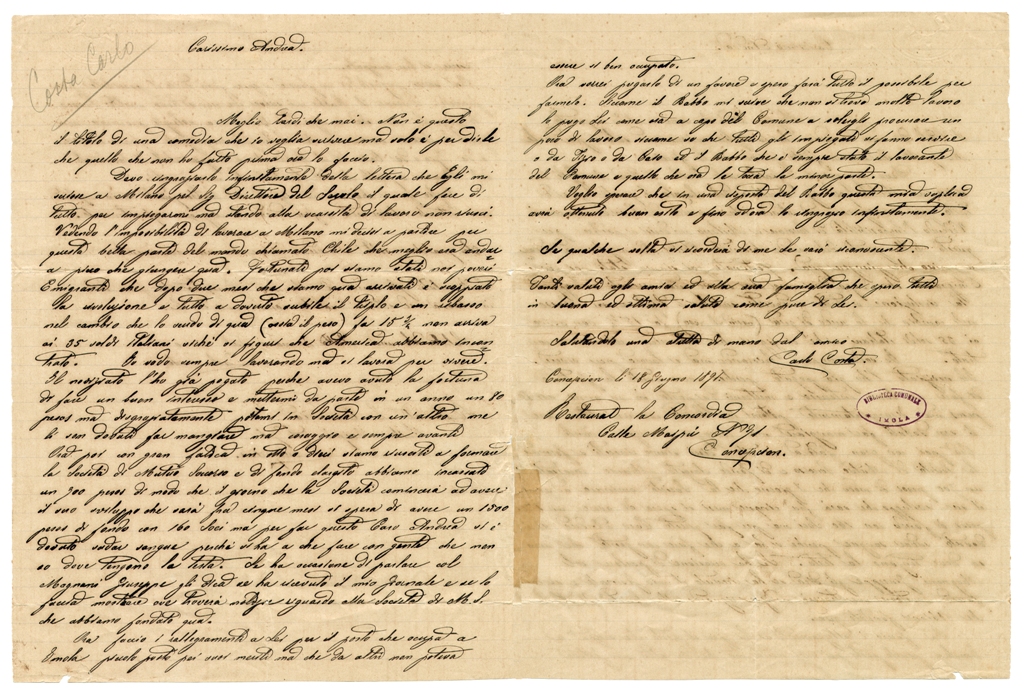 Costa Carlo
Carissimo Andrea.
Meglio tardi che mai. Non è questo
il titolo di una comedia che io voglia scrivere ma solo è per dirle
che quello che non ho fatto prima ora lo faccio.
Devo ringraziarlo infinitamente della lettera che Egli mi
scrisse a Milano per il Direttore del Secolo il quale fece di
tutto per impiegarmi ma stando alla scarsità di lavoro non riuscì.
Vedendo l'impossibilità di lavorare a Milano mi decisi a partire per
questa bella parte del mondo chiamata Chilì che meglio era andare
a picco che giungere qua. Fortunati poi siamo stati noi poveri
Emigranti che dopo due mesi che siamo qua arrivati è scoppiata
la rivoluzione e tutto a dovuto subire il rialzo e un ribasso
nel cambio che lo scudo di qua (ossia il peso) fa 15 ½ non arriva
ai 35 soldi Italiani sichè si figuri che America abbiamo incon
trato. Io vado sempre lavorando ma si lavora per vivere.
Il viaggio l'ho già pagato perchè avevo avuto la fortuna
di fare un buon interesse e mettermi da parte in un anno un 80
pesos ma disgraziatamente in Società con un'altro me
li son dovuti far mangiare ma coraggio e sempre avanti
Ora poi con gran fatica in otto o dieci siamo riusciti a formare
la Società di Mutuo Soccorso e di fondo abbiamo incassato
un 300 pesos di modo che il giorno che la Società comincerà ad avere
il suo sviluppo che sarà fra cinque mesi si spera di avere un 1500
pesos di fondo con 160 Soci ma per far questo Caro Andrea si è
dovuto sudar sangue perchè si ha a che fare con gente che non
so dove tengono la testa. Se ha occasione di parlare col
Mognani Giuseppe gli dica se ha ricevuto il mio giornale e se lo
faccia mostrare ove troverà notizie riguardo alla Società di M. S.
che abbiamo fondato qua.
Ora faccio i rallegramenti a Lei per il posto che occupa a
Imola piccolo posto pei suoi meriti ma che da altri non poteva
essere sì ben occupato.
Ora vorrei pregarlo di un favore e spero farà tutto il possibile per
farmelo. Siccome il Babbo mi scrive che non si trova molto lavoro
lo prego Lei come ora a capo del Comune a volergli procurare un
poco di lavoro siccome so che tutti gli impiegati si fanno servire
o da Tizio o da Caio ed il Babbo che è sempre stato il lavorante
del Comune è quello che ora la fa la minore parte.
Voglio sperare che in una risposta del Babbo questa mia supplica
avrà ottenuto buon esito e fino ad ora lo ringrazio infinitamente.
Se qualche volta si ricorderà di me Le sarò riconoscente.
Tanti saluti agli amici ed alla sua famiglia che spero tutti
in buona ed ottima salute come pure di Lei.
Salutandolo una stretta di mano dal amico
Carlo Costa.
Concepcion li 18 Giugno 1891.
Restaurat la Concordia
Calle Maipú N° 91
Concepcion.
BIBLIOTECA COMUNALE
IMOLA